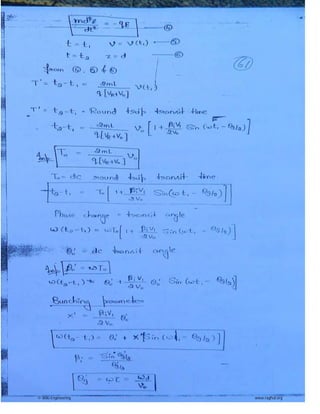 md²z/dt² = -qE — ④
t = t₁ v = v(t₁) — ⑤
t = t₂ z = d — ⑥
61
from ④, ⑤ & ⑥
T' = t₂ - t₁ = 2mL / q[VR+V₀] v(t₁)
T' = t₂ - t₁ = Round trip transit time
t₂ - t₁ = 2mL / q[VR+V₀] v₀ [1 + βᵢV₁/2V₀ Sin (ωt₁ - θg/2)]
Imp T₀' = 2mL / q[VR+V₀] v₀
T₀' = dc round trip transit time
t₂ - t₁ = T₀' [1 + βᵢV₁/2V₀ Sin(ωt₁ - θg/2)]
Phase change = transit angle
ω(t₂ - t₁) = ωT₀' [1 + βᵢV₁/2V₀ Sin (ωt₁ - θg/2)]
θ₀' = dc transit angle
Imp θ₀' = ωT₀'
ω(t₂ - t₁) = θ₀' + βᵢV₁/2V₀ θ₀' Sin (ωt₁ - θg/2)
Bunching parameter
x' = βᵢV₁/2V₀ θ₀'
ω(t₂ - t₁) = θ₀' + x' Sin (ωt₁ - θg/2)
βᵢ = Sin θg/2 / θg/2
θg = ωτ = ωd/v₀